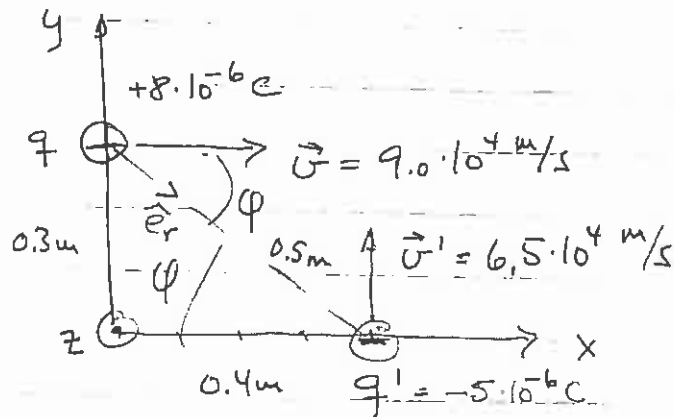 y
+8·10⁻⁶ C
q
v⃗ = 9.0·10⁴ m/s
e⃗ᵣ
φ
0.3m
-φ
0.5m
v⃗' = 6,5·10⁴ m/s
z
x
0.4m
q' = -5·10⁻⁶ C